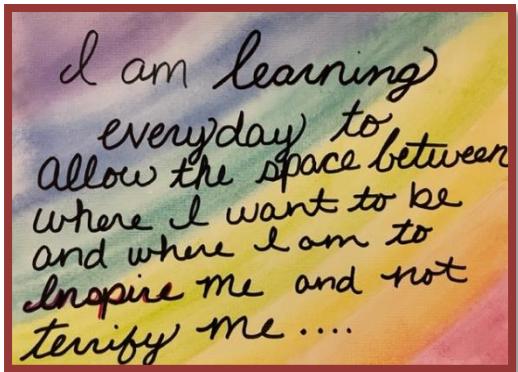 I am learning
everyday to
Allow the space between
where I want to be
and where I am to
Inspire me and not
terrify me....